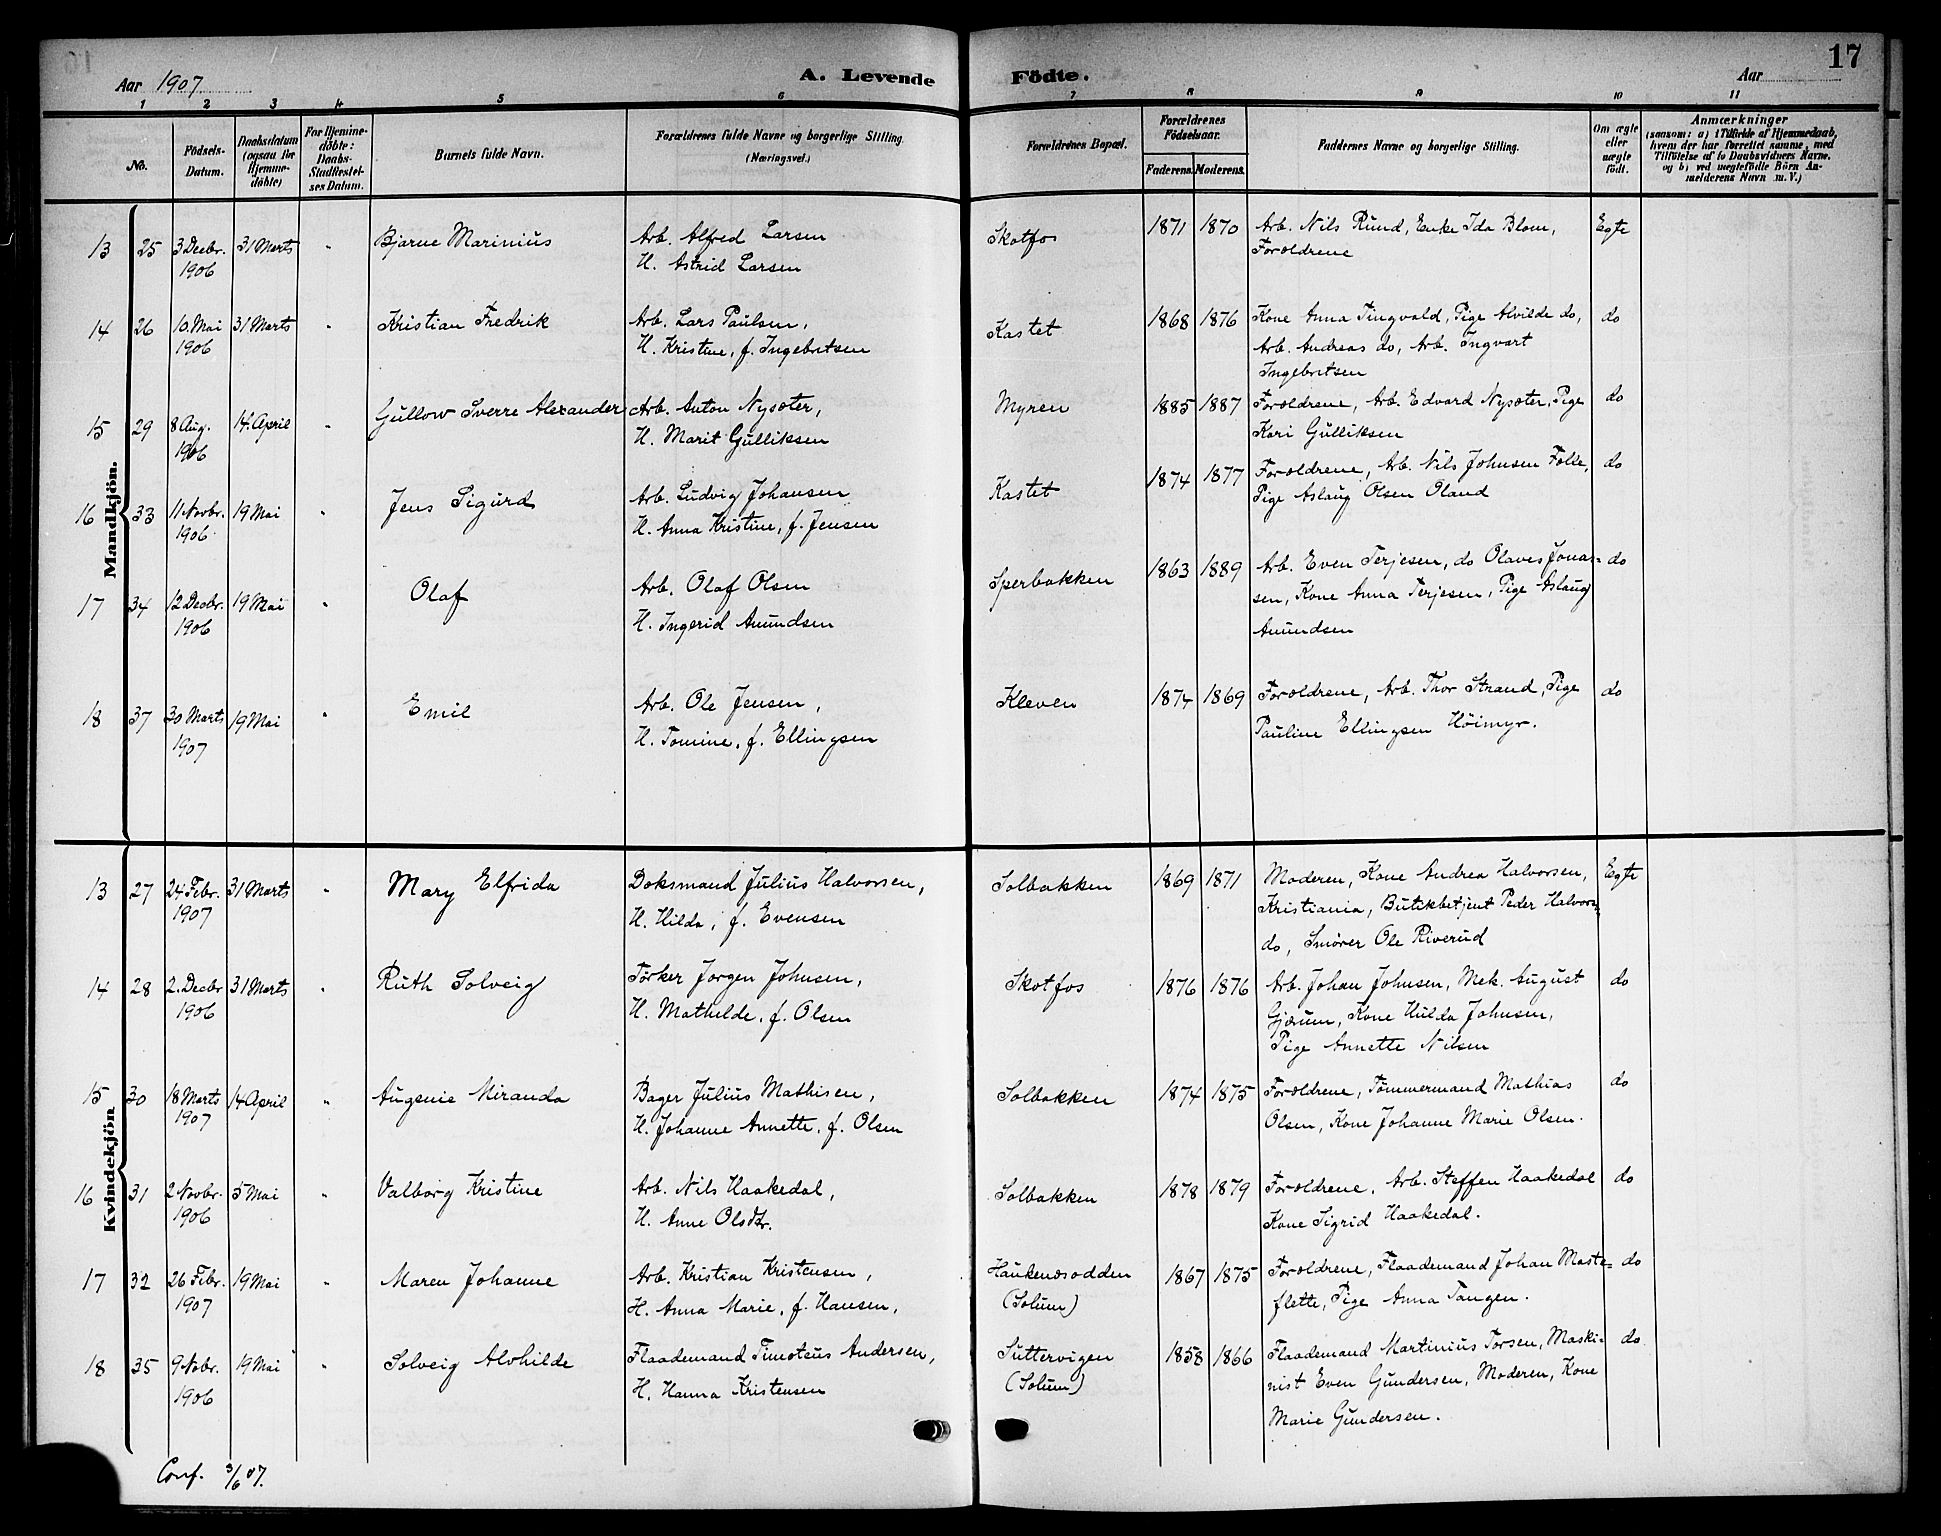 Aar 1907 A. Levende Födte. Aar 17
1 2 3 4 5 6 7 8 9 10 11
No.
Födsels-Datum.
Daabsdatum (ogsaa for Hjemmedöbte)
For Hjemmedöbte: Daabs-Stadfestelses Datum.
Barnets fulde Navn.
Forældrenes fulde Navne og borgerlige Stilling. (Næringsvei.)
Forældrenes Bopæl.
Forældrenes Födselsaar.
Faderens. Moderens.
Faddernes Navne og borgerlige Stilling.
Om ægte eller uægte födt.
Anmærkninger
(saasom: a) i Tilfælde af Hjemmedaab, hvem der har forrettet samme, med Tilföielse af to Daabsvidners Navne, og b) ved uægtefödte Börn Anmelderens Navn m. V.)
Mandkjön.
13 25 3 Decbr. 31 Marts " Bjarne Marinius Arb. Alfred Larsen Skotfos 1871 1870 Arb. Nils Rund, Enke Ida Blom, Egte
1906 H. Astrid Larsen Forældrene
14 26 10. Mai 31 Marts " Kristian Fredrik Arb. Lars Paulsen, Kastet 1868 1876 Kone Anna Tingvald, Pige Alvilde do, do
1906 H. Kristine, f. Ingebretsen Arb. Andreas do, Arb. Ingvart
Ingebretsen
15 29 8 Aug. 14. April " Gullow Sverre Alexander Arb. Anton Nysæter, Myren 1885 1887 Forældrene, Arb. Edvard Nysæter, Pige do
1906 H. Marit Gulliksen Kari Gulliksen
16 33 11 Novbr. 19 Mai " Jens Sigurd Arb. Ludvig Johansen Kastet 1874 1877 Forældrene, Arb. Nils Johnsen Folle, do
1906. H. Anna Kristine, f. Jensen Pige Aslaug Olsen Oland
17 34 12 Decbr. 19 Mai " Olaf Arb. Olaf Olsen Sperbakken 1863 1889 Arb. Even Terjesen, do Olaves Jona- do
1906 H. Ingerid Amundsen sen, Kone Anna Terjesen, Pige Aslaug
Amundsen
18 37 30 Marts 19 Mai " Emil Arb. Ole Jensen, Kleven 1874 1869 Forældrene, Arb. Thor Strand, Pige do
1907 H. Tomine, f. Ellingsen Pauline Ellingsen Höimyr.
Kvindekjön.
13 27 24 Febr. 31 Marts " Mary Elfrida Doksmand Julius Halvorsen, Solbakken 1869 1871 Moderen, Kone Andrea Halvorsen, Egte
1907 H. Hilda, f. Evensen Kristiania, Butikbetjent Peder Halvors.
do, Smörer Ole Riverud
14 28 2. Decbr 31 Marts " Ruth Solveig Törker Jørgen Johnsen, Skotfos 1876 1876 Arb. Johan Johnsen, Mek. August do
1906 H. Mathilde, f. Olsen Gjærum, Kone Hulda Johnsen,
Pige Annette Nilsen
15 30 18 Marts 14 April " Augenie Miranda Bager Julius Mathisen, Solbakken 1874 1875 Forældrene, Tømmermand Mathias do
1907 H. Johanne Annette, f. Olsen Olsen, Kone Johanne Marie Olsen.
16 31 2 Novbr. 5 Mai " Valborg Kristine Arb. Nils Haakedal, Solbakken 1878 1879 Forældrene, Arb. Steffen Haakedal do
1906 H. Anne Olsdtr. Kone Sigrid Haakedal.
17 32 26 Febr. 19 Mai " Maren Johanne Arb. Kristian Kristensen, Haukenæsodden 1867 1875 Forældrene, Flaademand Johan Maste- do
1907 H. Anna Marie, f. Hansen, (Solum) flette, Pige Anna Tangen.
18 35 9 Nobr. 19 Mai " Solveig Alvhilde Flaademand Timoteus Andersen, Suttervigen 1858 1866 Flaademand Martinius Torsen, Maski- do
1906 H. Hanna Kristensen (Solum) nist Even Gundersen, Moderen, Kone
Marie Gundersen.
Conf. 3/6 07.